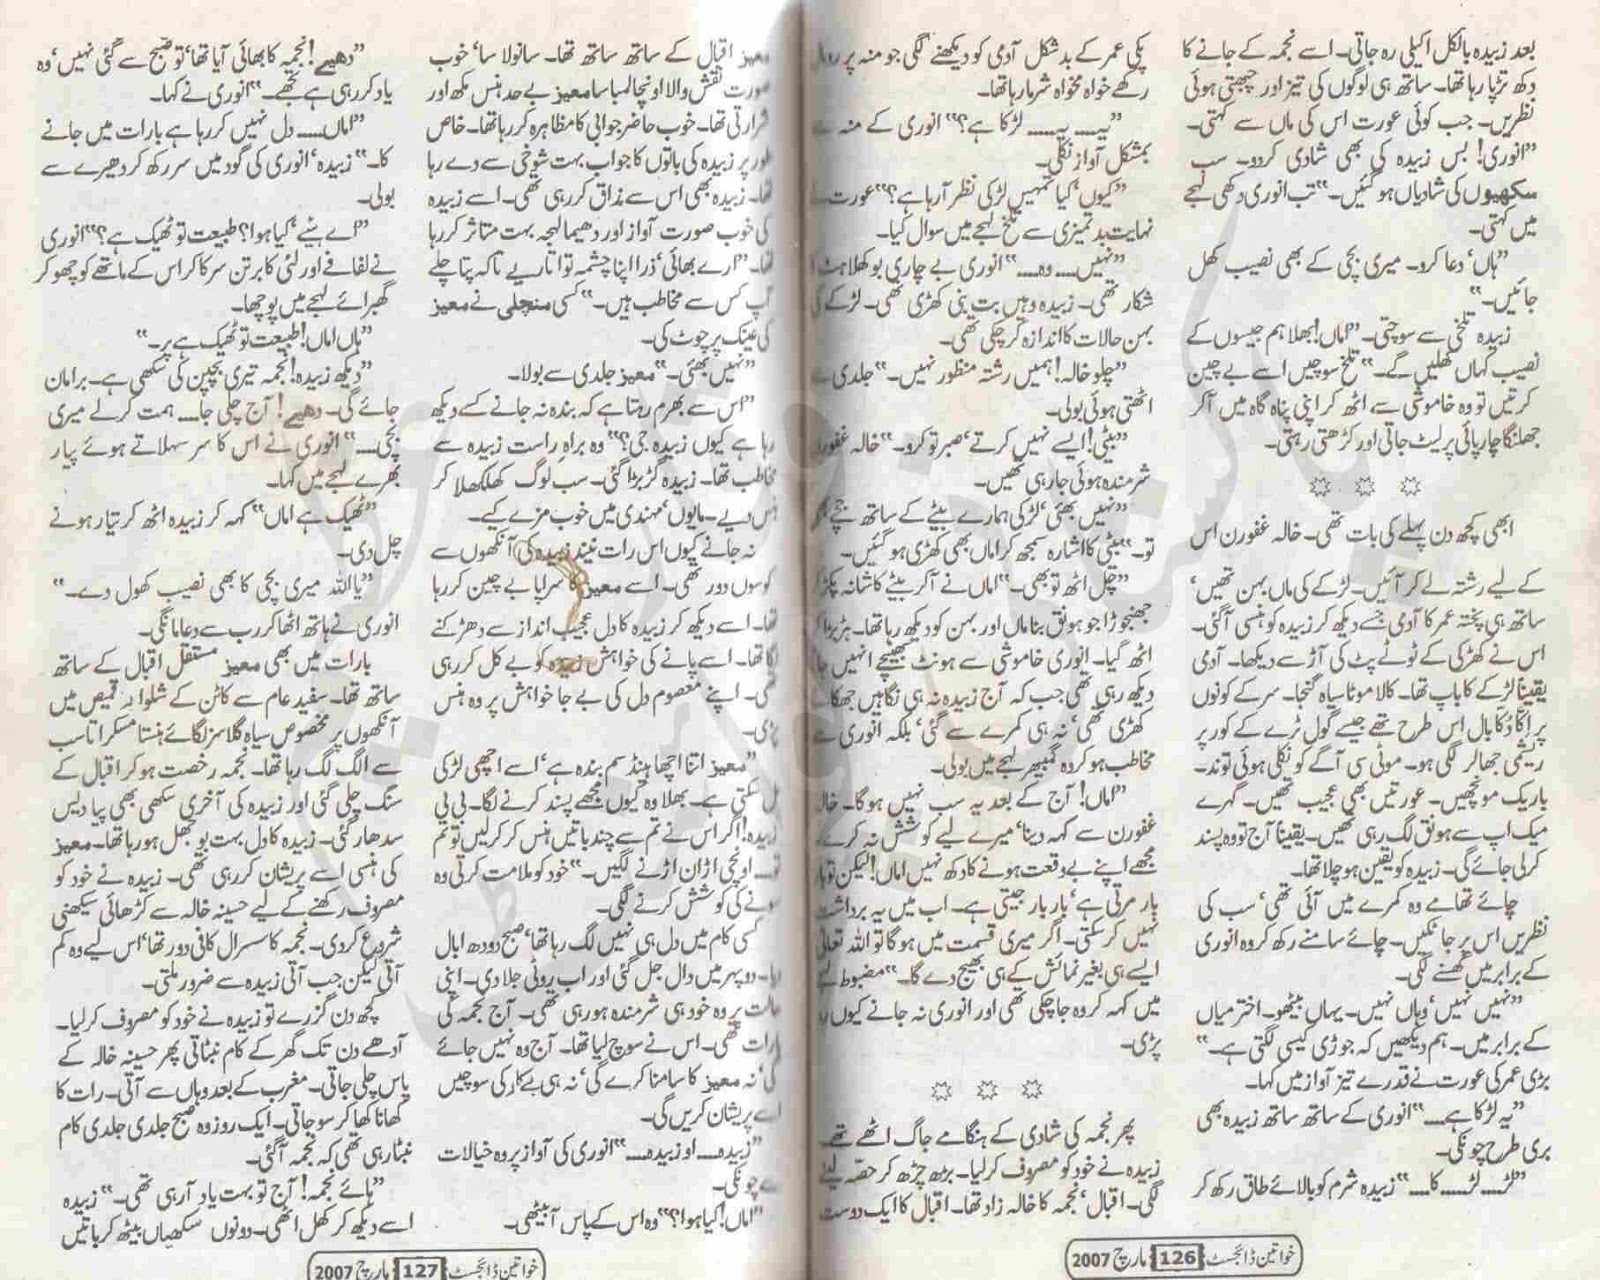 بعد زبیدہ بالکل اکیلی رہ جاتی۔ اسے نجمہ کے جانے کا
دکھ تڑپا رہا تھا۔ ساتھ ہی لوگوں کی تیز اور چبھتی ہوئی
نظریں۔ جب کوئی عورت اس کی ماں سے کہتی۔
”انوری! بس زبیدہ کی بھی شادی کردو۔ سب
سکھیوں کی شادیاں ہو گئیں۔“ تب انوری دکھی لہجے
میں کہتی۔
”ہاں‘ دعا کرو۔ میری بچی کے بھی نصیب کھل
جائیں۔“
زبیدہ تلخی سے سوچتی۔ ”اماں! بھلا ہم جیسوں کے
نصیب کہاں کھلیں گے۔“ تلخ سوچیں اسے بے چین
کرتیں تو وہ خاموشی سے اٹھ کر اپنی پناہ گاہ میں آکر
جھلنگا چارپائی پر لیٹ جاتی اور کڑھتی رہتی۔
ابھی کچھ دن پہلے کی بات تھی۔ خالہ غفورن اس
کے لیے رشتہ لے کر آئیں۔ لڑکے کی ماں بہن تھیں‘
ساتھ ہی پختہ عمر کا آدمی جسے دیکھ کر زبیدہ کو ہنسی آگئی۔
اس نے کھڑکی کے ٹوٹے پٹ کی آڑ سے دیکھا۔ آدمی
یقیناً لڑکے کا باپ تھا۔ کالا موٹا سیاہ گنجا۔ سر کے کونوں
پر اکا دکا بال اس طرح تھے جیسے گول ٹرے کے کور پر
ریشمی جھالر لگی ہو۔ موٹی سی آگے کو نکلی ہوئی توند۔
باریک مونچھیں۔ عورتیں بھی عجیب تھیں۔ گہرے
میک اپ سے ہونق لگ رہی تھیں۔ یقیناً آج تو وہ پسند
کرلی جائے گی۔ زبیدہ کو یقین ہو چلا تھا۔
چائے تھامے وہ کمرے میں آئی تھی‘ سب کی
نظریں اس پر جا ٹکیں۔ چائے سامنے رکھ کر وہ انوری
کے برابر میں گھسنے لگی۔
”نہیں نہیں‘ وہاں نہیں۔ یہاں بیٹھو۔ اختر میاں
کے برابر میں۔ ہم دیکھیں کہ جوڑی کیسی لگتی ہے۔“
بڑی عمر کی عورت نے قدرے تیز آواز میں کہا۔
”یہ لڑکا ہے....“ انوری کے ساتھ ساتھ زبیدہ بھی
بری طرح چونکی۔
”لڑ.... لڑ.... کا....“ زبیدہ شرم کو بالائے طاق رکھ کر
پکی عمر کے بد شکل آدمی کو دیکھنے لگی جو منہ پر رومال
رکھے خواہ مخواہ شرما رہا تھا۔
”یہ.... یہ.... لڑکا ہے؟“ انوری کے منہ سے
بمشکل آواز نکلی۔
”کیوں‘ کیا تمہیں لڑکی نظر آرہا ہے؟“ عورت
نہایت بدتمیزی سے تلخ لہجے میں سوال کیا۔
”نہیں.... وہ....“ انوری بے چاری بوکھلاہٹ
شکار تھی۔ زبیدہ وہیں بت بنی کھڑی تھی۔ لڑکے کی
بہن حالات کا اندازہ کر چکی تھی۔
”چلو خالہ! ہمیں رشتہ منظور نہیں۔“ جلدی سے
اٹھتی ہوئی بولی۔
”بیٹی! ایسے نہیں کرتے‘ صبر تو کرو۔“ خالہ غفورن
شرمندہ ہوئی جا رہی تھیں۔
”نہیں بھئی‘ لڑکی ہمارے بیٹے کے ساتھ جچے گی
تو۔“ بیٹی کا اشارہ سمجھ کر اماں بھی کھڑی ہو گئیں۔
”چل اٹھ تو بھی۔“ اماں نے آکر بیٹے کا شانہ پکڑ کر
جھنجوڑا جو ہونق بنا ماں اور بہن کو دیکھ رہا تھا۔ ہڑبڑا کر
اٹھ گیا۔ انوری خاموشی سے ہونٹ بھینچے انہیں جاتا
دیکھ رہی تھی جب کہ آج زبیدہ نہ ہی نگاہیں جھکائے
کھڑی تھی‘ نہ ہی کمرے سے گئی‘ بلکہ انوری سے
مخاطب ہو کر وہ گمبھیر لہجے میں بولی۔
”اماں! آج کے بعد یہ سب نہیں ہو گا۔ خالہ
غفورن سے کہہ دینا‘ میرے لیے کوشش نہ کرے۔
مجھے اپنے بے وقعت ہونے کا دکھ نہیں اماں! لیکن تو بار
بار مرتی ہے‘ بار بار جیتی ہے۔ اب میں یہ برداشت
نہیں کر سکتی۔ اگر میری قسمت میں ہو گا تو اللہ تعالیٰ
ایسے ہی بغیر نمائش کے ہی بھیج دے گا۔“ مضبوط لہجے
میں کہہ کر وہ جا چکی تھی اور انوری نہ جانے کیوں رو
پڑی۔
پھر نجمہ کی شادی کے ہنگامے جاگ اٹھے تھے۔
زبیدہ نے خود کو مصروف کر لیا۔ بڑھ چڑھ کر حصہ لینے
لگی۔ اقبال‘ نجمہ کا خالہ زاد تھا۔ اقبال کا ایک دوست
خواتین ڈائجسٹ 126 مارچ 2007
معیز اقبال کے ساتھ ساتھ تھا۔ سانولا سا‘ خوب
صورت نقش والا اونچا لمبا سا معیز بے حد ہنس مکھ اور
شرارتی تھا۔ خوب حاضر جوابی کا مظاہرہ کر رہا تھا۔ خاص
طور پر زبیدہ کی باتوں کا جواب بہت شوخی سے دے رہا
تھا۔ زبیدہ بھی اس سے مذاق کر رہی تھی۔ اسے زبیدہ
کی خوب صورت آواز اور دھیما لہجہ بہت متاثر کر رہا
تھا۔ ”ارے بھائی‘ ذرا اپنا چشمہ تو اتاریے تاکہ پتا چلے
آپ کس سے مخاطب ہیں۔“ کسی منچلی نے معیز
کی عینک پر چوٹ کی۔
”نہیں بھئی۔“ معیز جلدی سے بولا۔
”اس سے بھرم رہتا ہے کہ بندہ نہ جانے کسے دیکھ
رہا ہے کیوں زبیدہ جی؟“ وہ براہ راست زبیدہ سے
مخاطب تھا۔ زبیدہ گڑبڑا گئی۔ سب لوگ کھلکھلا کر
ہنس دیے۔ مایوں‘ مہندی میں خوب مزے کیے۔
نہ جانے کیوں اس رات نیند زبیدہ کی آنکھوں سے
کوسوں دور تھی۔ اسے معیز کا سراپا بے چین کر رہا
تھا۔ اسے دیکھ کر زبیدہ کا دل عجیب انداز سے دھڑکنے
لگا تھا۔ اسے پانے کی خواہش زبیدہ کو بے کل کر رہی
تھی۔ اپنے معصوم دل کی بے جا خواہش پر وہ ہنس
پڑی۔
”معیز اتنا اچھا ہینڈسم بندہ ہے‘ اسے اچھی لڑکی
مل سکتی ہے۔ بھلا وہ کیوں مجھے پسند کرنے لگا۔ بی بی
زبیدہ! اگر اس نے تم سے چند باتیں ہنس کر کر لیں تو تم
تو.... اونچی اڑان اڑنے لگیں۔“ خود کو ملامت کرتی وہ
سونے کی کوشش کرنے لگی۔
کسی کام میں دل ہی نہیں لگ رہا تھا‘ صبح دودھ ابال
دیا۔ دوپہر میں دال جل گئی اور اب روٹی جلا دی۔ اپنی
حالت پر وہ خود ہی شرمندہ ہو رہی تھی۔ آج نجمہ کی
بارات تھی۔ اس نے سوچ لیا تھا۔ آج وہ نہیں جائے
گی‘ نہ معیز کا سامنا کرے گی‘ نہ ہی بے کار کی سوچیں
اسے پریشان کریں گی۔
”زبیدہ.... او زبیدہ....“ انوری کی آواز پر وہ خیالات
سے چونکی۔
”اماں! کیا ہوا؟“ وہ اس کے پاس آ بیٹھی۔
”دھیے! نجمہ کا بھائی آیا تھا‘ تو صبح سے گئی نہیں‘ وہ
یاد کر رہی ہے تجھے۔“ انوری نے کہا۔
”اماں.... دل نہیں کر رہا ہے بارات میں جانے
کا۔“ زبیدہ‘ انوری کی گود میں سر رکھ کر دھیرے سے
بولی۔
”اے بنیے‘ کیا ہوا؟ طبیعت تو ٹھیک ہے؟“ انوری
نے لفافے اور لئی کا برتن سرکا کر اس کے ماتھے کو چھو کر
گھبرائے لہجے میں پوچھا۔
”ہاں اماں! طبیعت تو ٹھیک ہے پر۔“
”دیکھ زبیدہ! نجمہ تیری بچپن کی سکھی ہے۔ برا مان
جائے گی۔ دھیے! آج چلی جا.... ہمت کر لے میری
بچی....“ انوری نے اس کا سر سہلاتے ہوئے پیار
بھرے لہجے میں کہا۔
”ٹھیک ہے اماں“ کہہ کر زبیدہ اٹھ کر تیار ہونے
چل دی۔
”یا اللہ میری بچی کا بھی نصیب کھول دے۔“
انوری نے ہاتھ اٹھا کر رب سے دعا مانگی۔
بارات میں بھی معیز مستقل اقبال کے ساتھ
ساتھ تھا۔ سفید عام سے کاٹن کے شلوار قمیص میں
آنکھوں پر مخصوص سیاہ گلاسز لگائے ہنستا مسکراتا سب
سے الگ لگ رہا تھا۔ نجمہ رخصت ہو کر اقبال کے
سنگ چلی گئی اور زبیدہ کی آخری سکھی بھی پیا دیس
سدھار گئی۔ زبیدہ کا دل بہت بوجھل ہو رہا تھا۔ معیز
کی ہنسی اسے پریشان کر رہی تھی۔ زبیدہ نے خود کو
مصروف رکھنے کے لیے حسینہ خالہ سے کڑھائی سیکھنی
شروع کر دی۔ نجمہ کا سسرال کافی دور تھا‘ اس لیے وہ کم
آتی لیکن جب آتی زبیدہ سے ضرور ملتی۔
کچھ دن گزرے تو زبیدہ نے خود کو مصروف کر لیا۔
آدھے دن تک گھر کے کام نبٹاتی پھر حسینہ خالہ کے
پاس چلی جاتی۔ مغرب کے بعد وہاں سے آتی۔ رات کا
کھانا کھا کر سو جاتی۔ ایک روز وہ صبح جلدی جلدی کام
نبٹا رہی تھی کہ نجمہ آگئی۔
”ہائے نجمہ! آج تو بہت یاد آرہی تھی۔“ زبیدہ
اسے دیکھ کر کھل اٹھی۔ دونوں سکھیاں بیٹھ کر باتیں
خواتین ڈائجسٹ 127 مارچ 2007